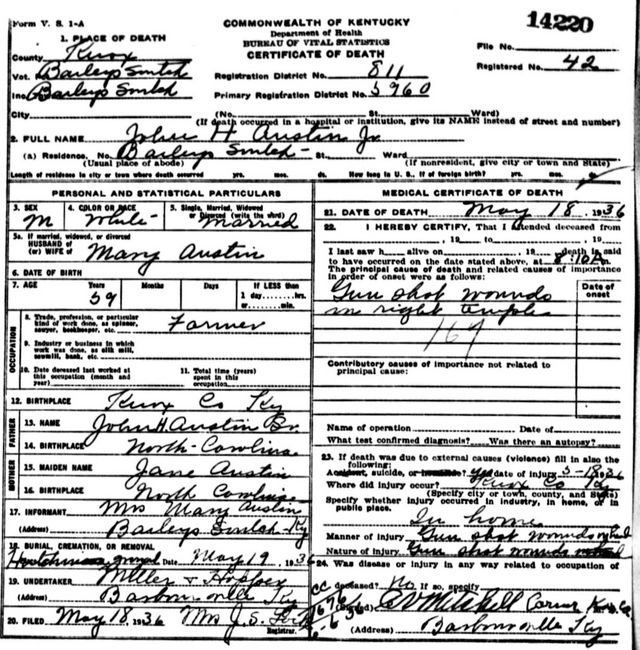 Form V. S. 1-A
COMMONWEALTH OF KENTUCKY
14220
1. PLACE OF DEATH
Department of Health
BUREAU OF VITAL STATISTICS
CERTIFICATE OF DEATH
File No.
County Knox
Registered No. 42
Vot. Baileys Switch
Registration District No. 811
Inc Baileys Switch
Primary Registration District No. 5960
City (No. St. Ward)
(If death occurred in a hospital or institution, give its NAME instead of street and number)
2. FULL NAME John H. Austin Jr
(a) Residence, No. Baileys Switch St., Ward
(Usual place of abode) (If nonresident, give city or town and State)
Length of residence in city or town where death occurred yrs. mos. ds. How long in U. S., if of foreign birth? yrs. mos. ds.
PERSONAL AND STATISTICAL PARTICULARS
3. SEX 4. COLOR OR RACE 5. Single, Married, Widowed
or Divorced (write the word)
M White Married
5a. If married, widowed, or divorced
HUSBAND of
(or) WIFE of Mary Austin
6. DATE OF BIRTH
7. AGE Years Months Days If LESS than
1 day......hrs.
or......min.
59
OCCUPATION
8. Trade, profession, or particular
kind of work done, as spinner,
sawyer, bookkeeper, etc. Farmer
9. Industry or business in which
work was done, as silk mill,
sawmill, bank, etc.
10. Date deceased last worked at
this occupation (month and
year)
11. Total time (years)
spent in this
occupation
12. BIRTHPLACE Knox Co Ky
FATHER
13. NAME John H Austin Sr.
14. BIRTHPLACE North Carolina
MOTHER
15. MAIDEN NAME Jane Austin
16. BIRTHPLACE North Carolina
17. INFORMANT Mrs Mary Austin
(Address) Baileys Switch Ky
18. BURIAL, CREMATION, OR REMOVAL
Date May 19, 1936
19. UNDERTAKER Miller &
(Address) Barbourville Ky
20. FILED May 18, 1936 Mrs J. S.
Registrar.
MEDICAL CERTIFICATE OF DEATH
21. DATE OF DEATH May 18, 1936
22. I HEREBY CERTIFY, That I attended deceased from
, 19 to , 19
I last saw h alive on , 19 death is said
to have occurred on the date stated above, at 8:10A m.
The principal cause of death and related causes of importance
in order of onset were as follows:
Date of
onset
Gun shot wounds
in right temple
167
Contributory causes of importance not related to
principal cause:
Name of operation Date of
What test confirmed diagnosis? Was there an autopsy?
23. If death was due to external causes (violence) fill in also the
following:
Accident, suicide, or homicide? yes date of injury 5-18, 1936
Where did injury occur? Knox Co Ky
(Specify city or town, county, and State)
Specify whether injury occurred in industry, in home, or in
public place.
In home
Manner of injury Gun shot wounds
Nature of injury Gun shot wounds
24. Was disease or injury in any way related to occupation of
deceased? No If so, specify
(Signed) Mitchell
(Address) Barbourville Ky